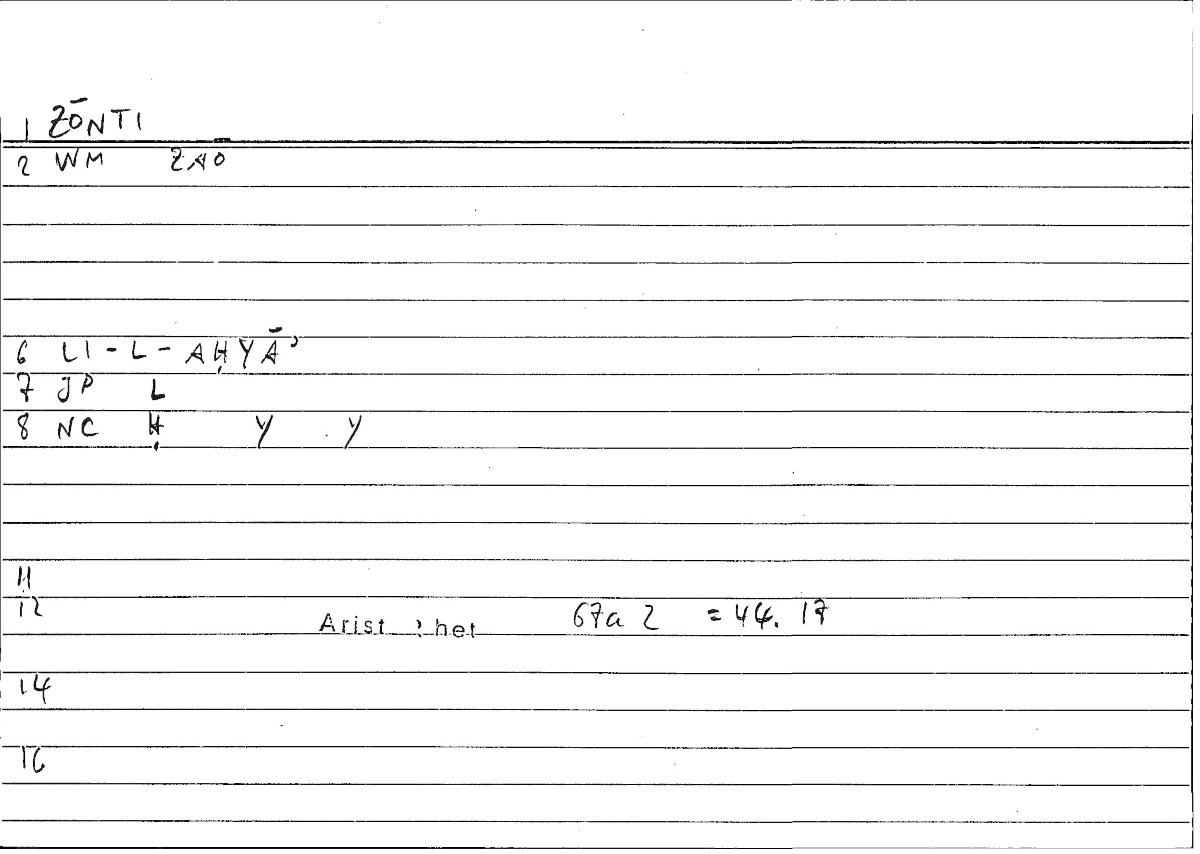 1 ZŌNTI
2 WM ZAŌ
6 LI - L - AḤYĀʾ
7 JP L
8 NC Ḥ Y Y
11
12 Arist Rhet 67a 2 = 44. 17
14
16